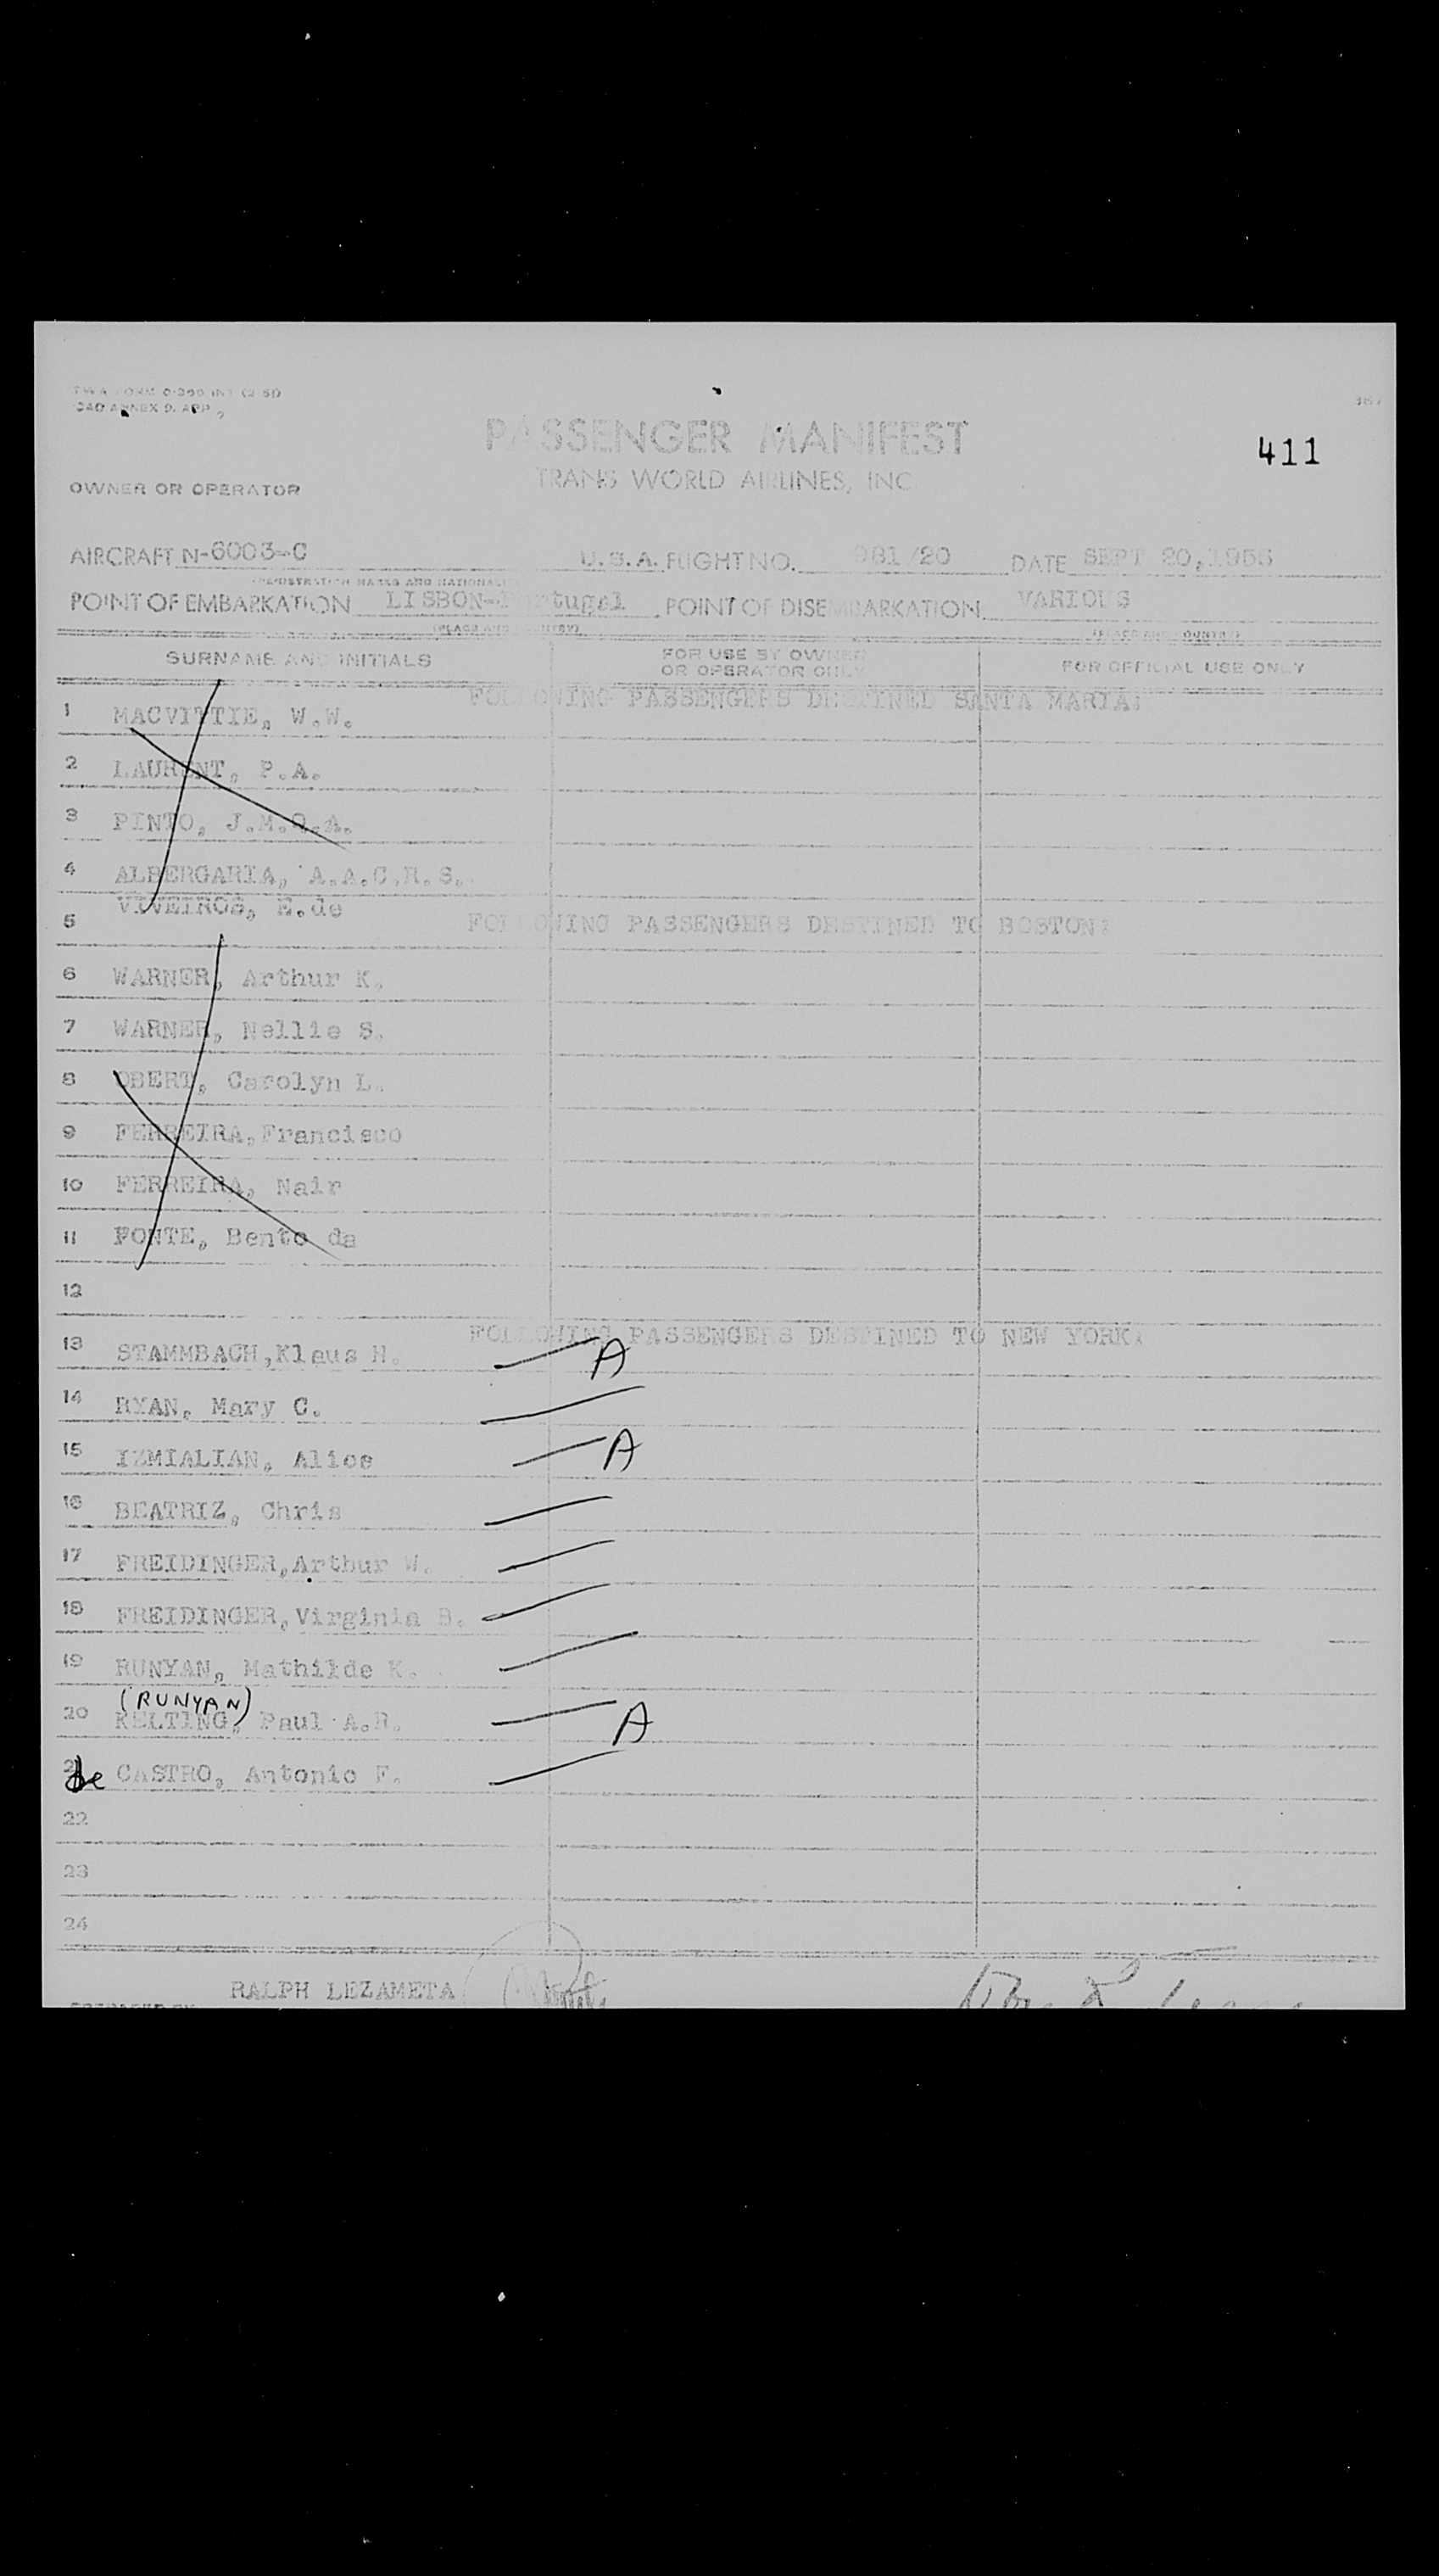 TWA FORM O-200 INT (2-51)
PASSENGER MANIFEST
411
TRANS WORLD AIRLINES, INC
OWNER OR OPERATOR
AIRCRAFT N-6003-C U.S.A. FLIGHT NO. 981/20 DATE SEPT 20,1955
POINT OF EMBARKATION LISBON-Portugal POINT OF DISEMBARKATION VARIOUS
SURNAME AND INITIALS FOR USE BY OWNER OR OPERATOR ONLY FOR OFFICIAL USE ONLY
FOLLOWING PASSENGERS DESTINED SANTA MARIA:
1 MACVITTIE, W.W.
2 LAURENT, P.A.
3 PINTO, J.M.O.A.
4 ALBERGARIA, A.A.C.R.S.
VIVEIROS, E.de
5 FOLLOWING PASSENGERS DESTINED TO BOSTON:
6 WARNER, Arthur K.
7 WARNER, Nellie S.
8 OBERT, Carolyn L.
9 FERREIRA,Francisco
10 FERREIRA, Nair
11 FONTE, Bento da
12
FOLLOWING PASSENGERS DESTINED TO NEW YORK:
13 STAMMBACH,Klaus H. A
14 RYAN, Mary C.
15 IZMIALIAN, Alice A
16 BEATRIZ, Chris
17 FREIDINGER,Arthur W.
18 FREIDINGER,Virginia B.
19 RUNYAN, Mathilde K.
(RUNYAN)
20 KELTING, Paul A.R. A
21 de CASTRO, Antonio F.
22
23
24
RALPH LEZAMETA